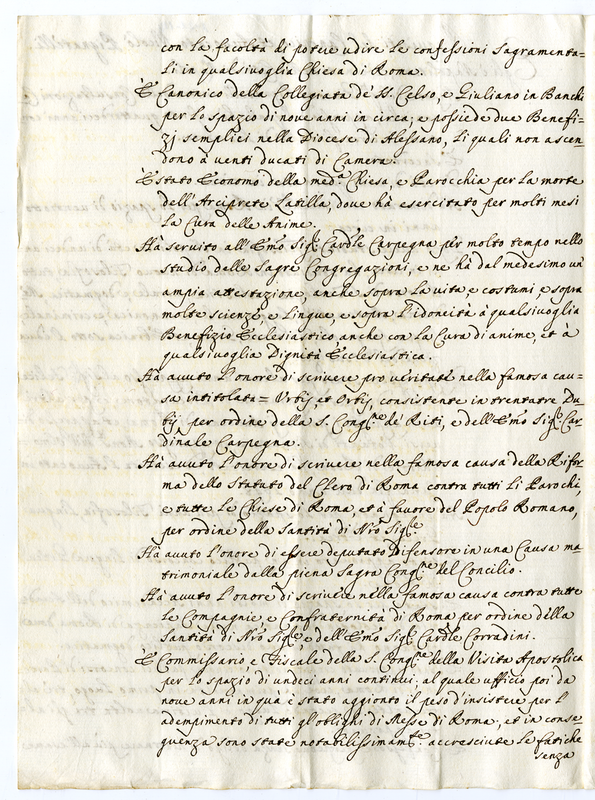 con la facoltà di potere udire le confessioni Sagramenta=
li in qualsivoglia Chiesa di Roma.
È Canonico della Collegiata de' SS. Celso, e Giuliano in Banchi
per lo spazio di nove anni in circa; e possiede due Benefi=
zj semplici nella Diocese di Alessano, li quali non ascen=
dono à venti ducati di Camera.
È stato Economo della med.a Chiesa, e Parocchia per la morte
dell'Arciprete Latilla, dove hà esercitato per molti mesi
la Cura delle Anime.
Hà servito all'Emo Sig.r Cardle Carpegna per molto tempo nello
studio delle Sagre Congregazioni, e ne hà dal medesimo un'
ampia attestazione, anche sopra la vita, e costumi, e sopra
molte scienze, e Lingue, e sopra l'idoneità à qualsivoglia
Benefizio Ecclesiastico anche con la Cura di anime, et à
qualsivoglia Dignità Ecclesiastica.
Hà avuto l'onore di scrivere pro veritate nella famosa cau=
sa intitolata = Urbis, et Orbis, consistente in trentatre Du=
bij, per ordine della S. Cong.ne de' Riti, e dell'Emo Sig.r Car=
dinale Carpegna.
Hà avuto l'onore di scrivere nella famosa causa della Rifor=
ma dello Statuto del Clero di Roma contra tutti li Parochi,
e tutte le Chiese di Roma, et à favore del Popolo Romano,
per ordine della Santità di Nro Sig.re
Hà avuto l'onore di essere deputato Difensore in una Causa ma=
trimoniale dalla piena Sagra Cong.ne del Concilio.
Hà avuto l'onore di scrivere nella famosa causa contra tutte
le Compagnie, e Confraternità di Roma per ordine della
Santità di Nro Sig.re, e dell'Emo Sig.r Cardle Corradini.
È Commissario, e Fiscale della S. Cong.ne della Visita Apostolica
per lo spazio di undeci anni continui, al quale uffizio poi da
nove anni in quà è stato aggionto il peso d'insistere per l'
adempimento di tutti gl'oblighi di Messe di Roma; et in conse=
guenza sono state notabilissimam.te accresciute le fatiche
senza